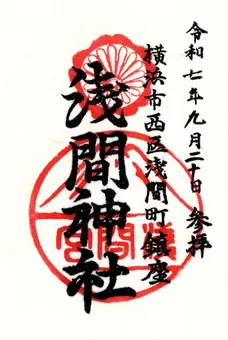 令和七年九月二十日 参拝
横浜市西区浅間町鎮座
浅間神社